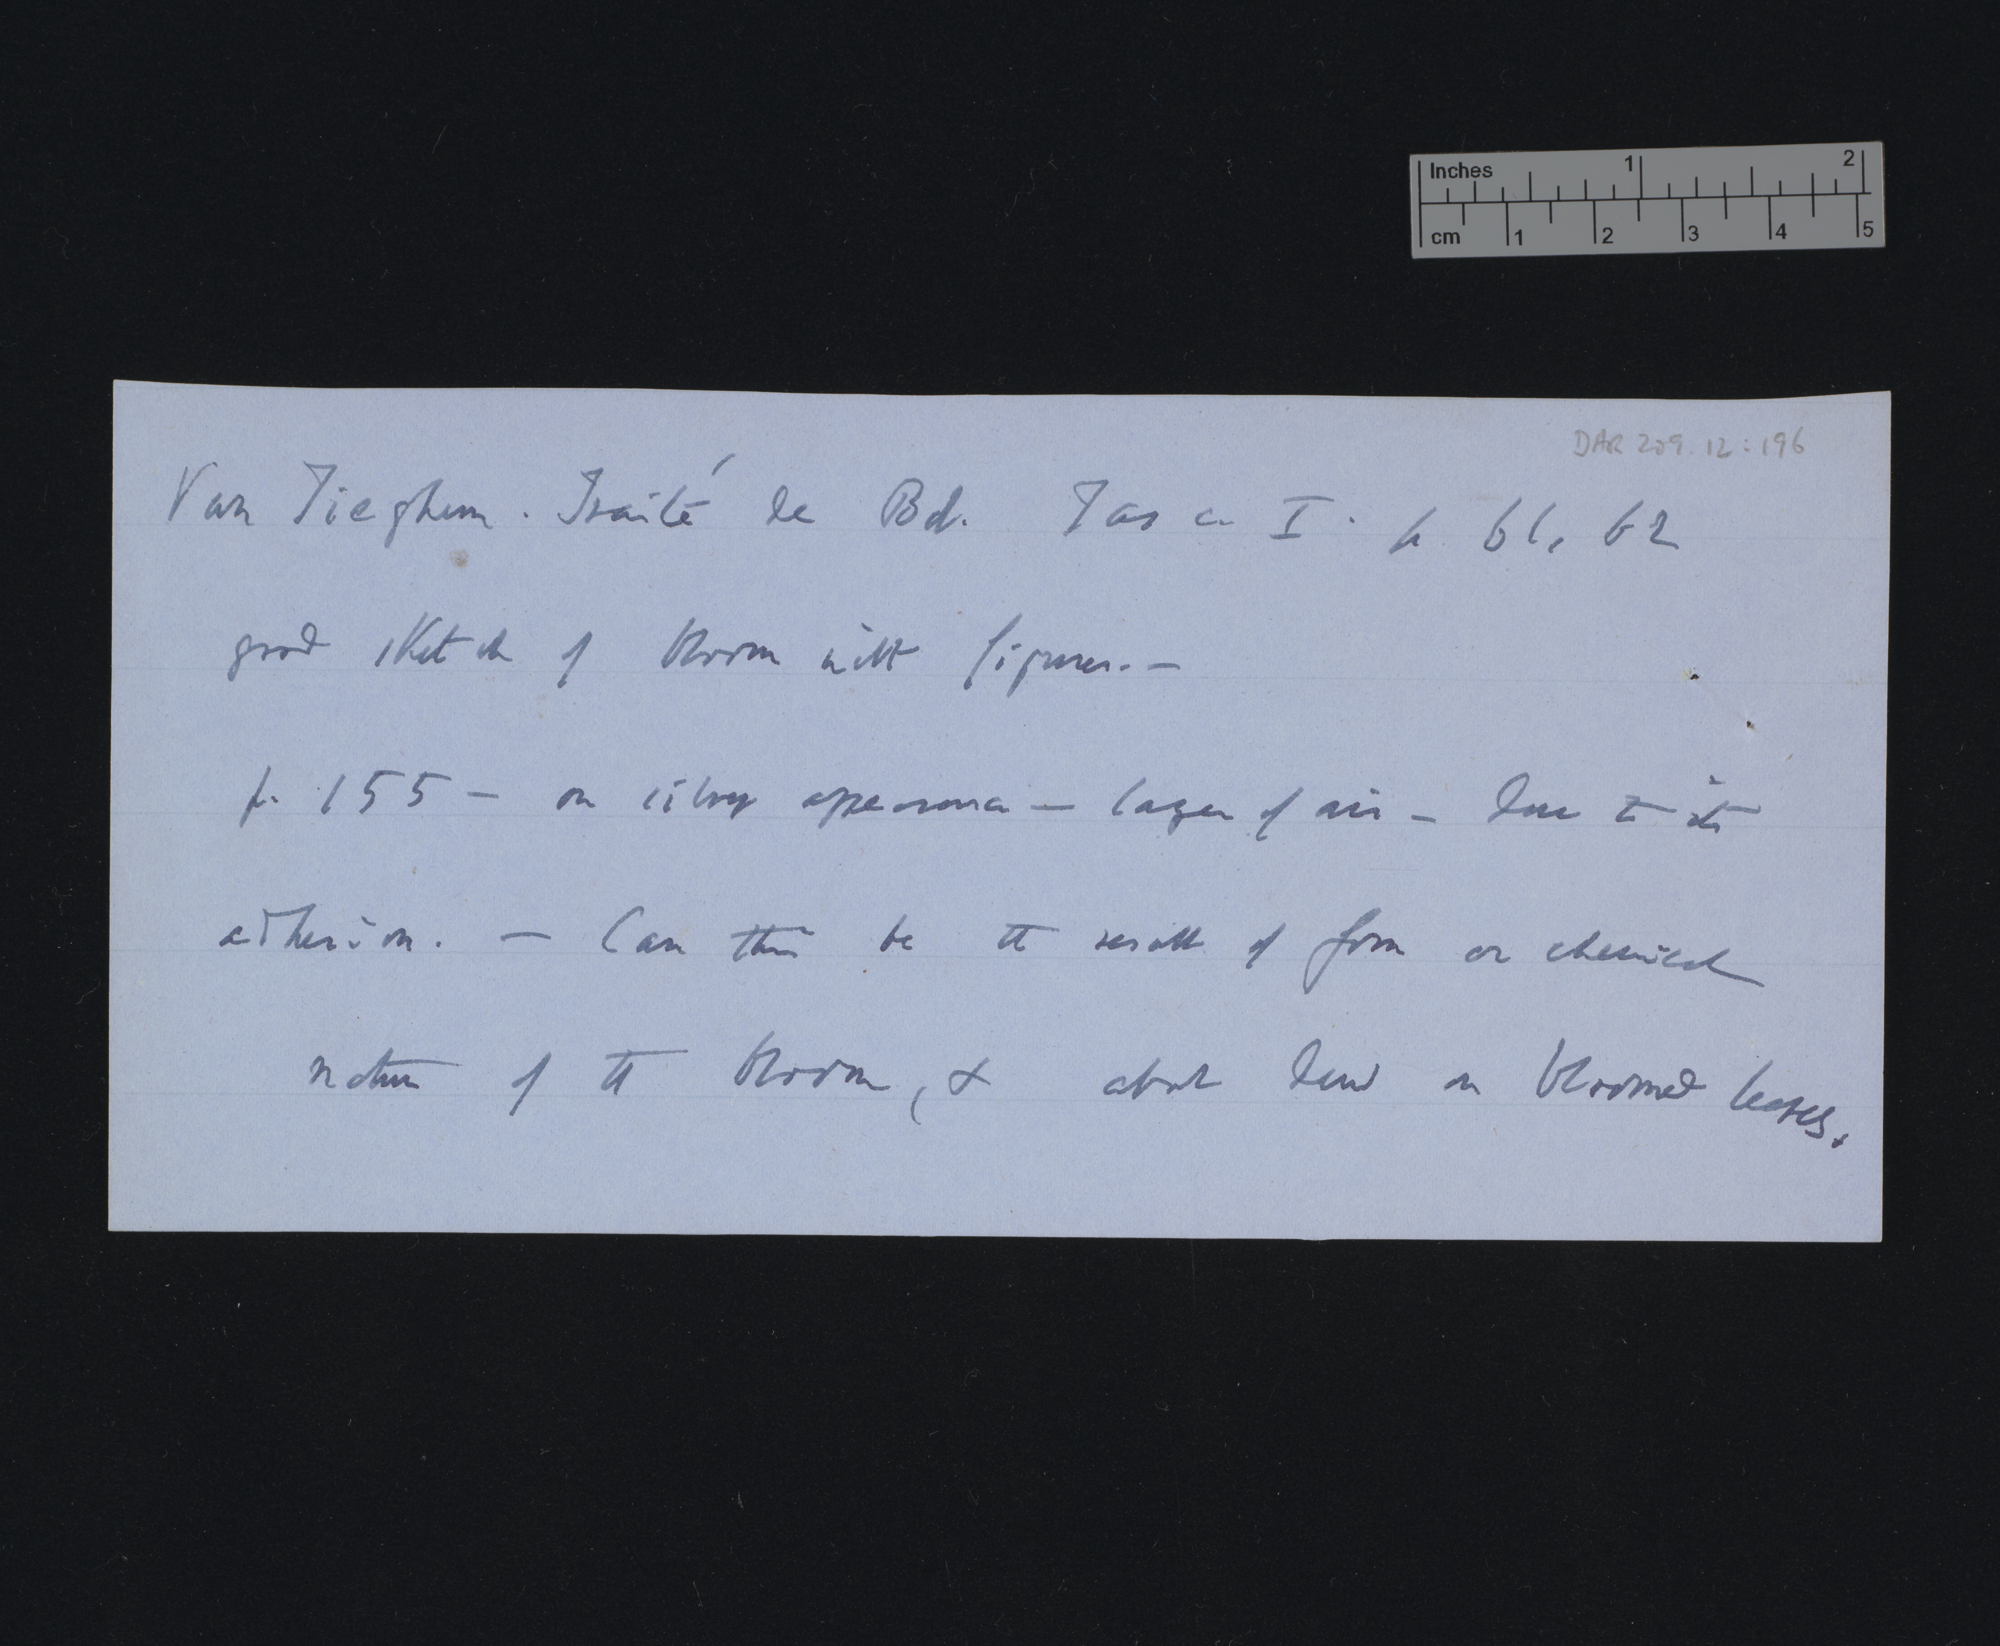 Inches 1 2
cm 1 2 3 4 5
DAR 209.12:196
Van Tieghem. Traité de Bot. Fasc I. p 61, 62
good sketch of bloom with figures. —
p. 155 — on silvery appearance — layer of air — due to its
adhesion. — Can this be the result of form or chemical
nature of the bloom, & about dew on bloomed leaves.